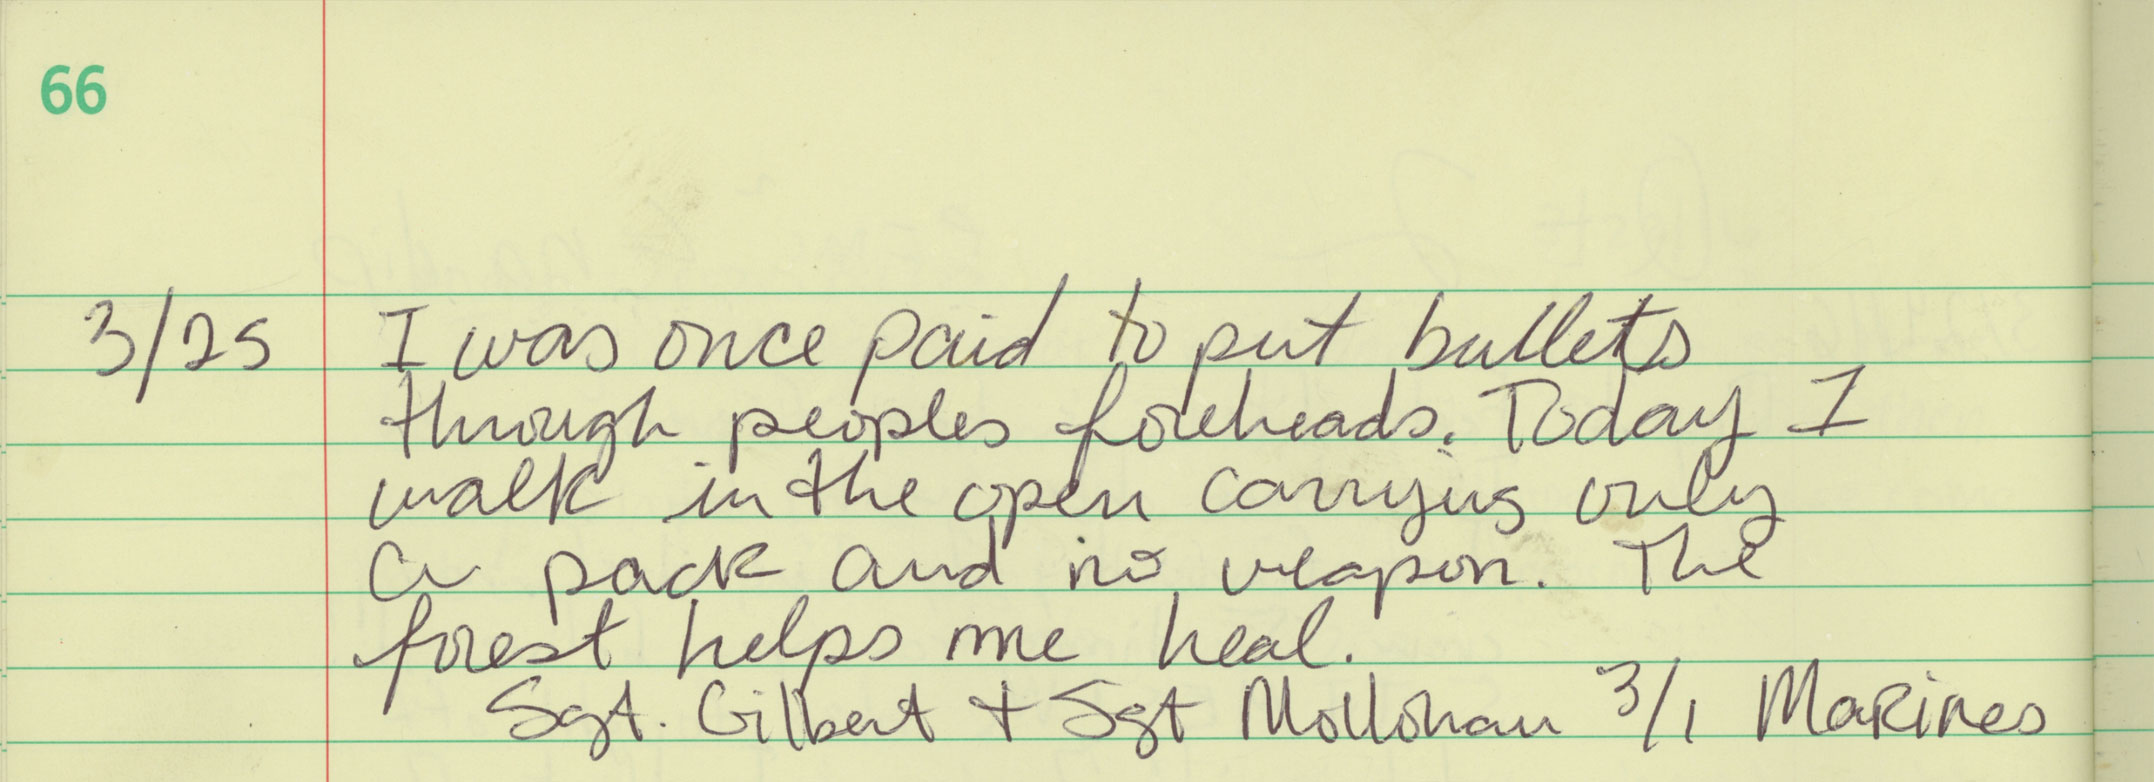 66
3/25 I was once paid to put bullets
through peoples foreheads. Today I
walk in the open carrying only
a pack and no weapon. The
forest helps me heal.
Sgt. Gilbert + Sgt Mollohan 3/1 Marines